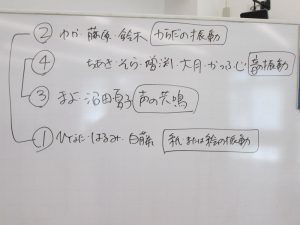 ② ゆか・藤原・鈴木 からだの振動
④ ちあき・そら・增渕・大月・かっふじ 音の振動
③ まよ・沼田・勇子 声の共鳴
① ひなた・はるみ・白藤 紙または絵の振動